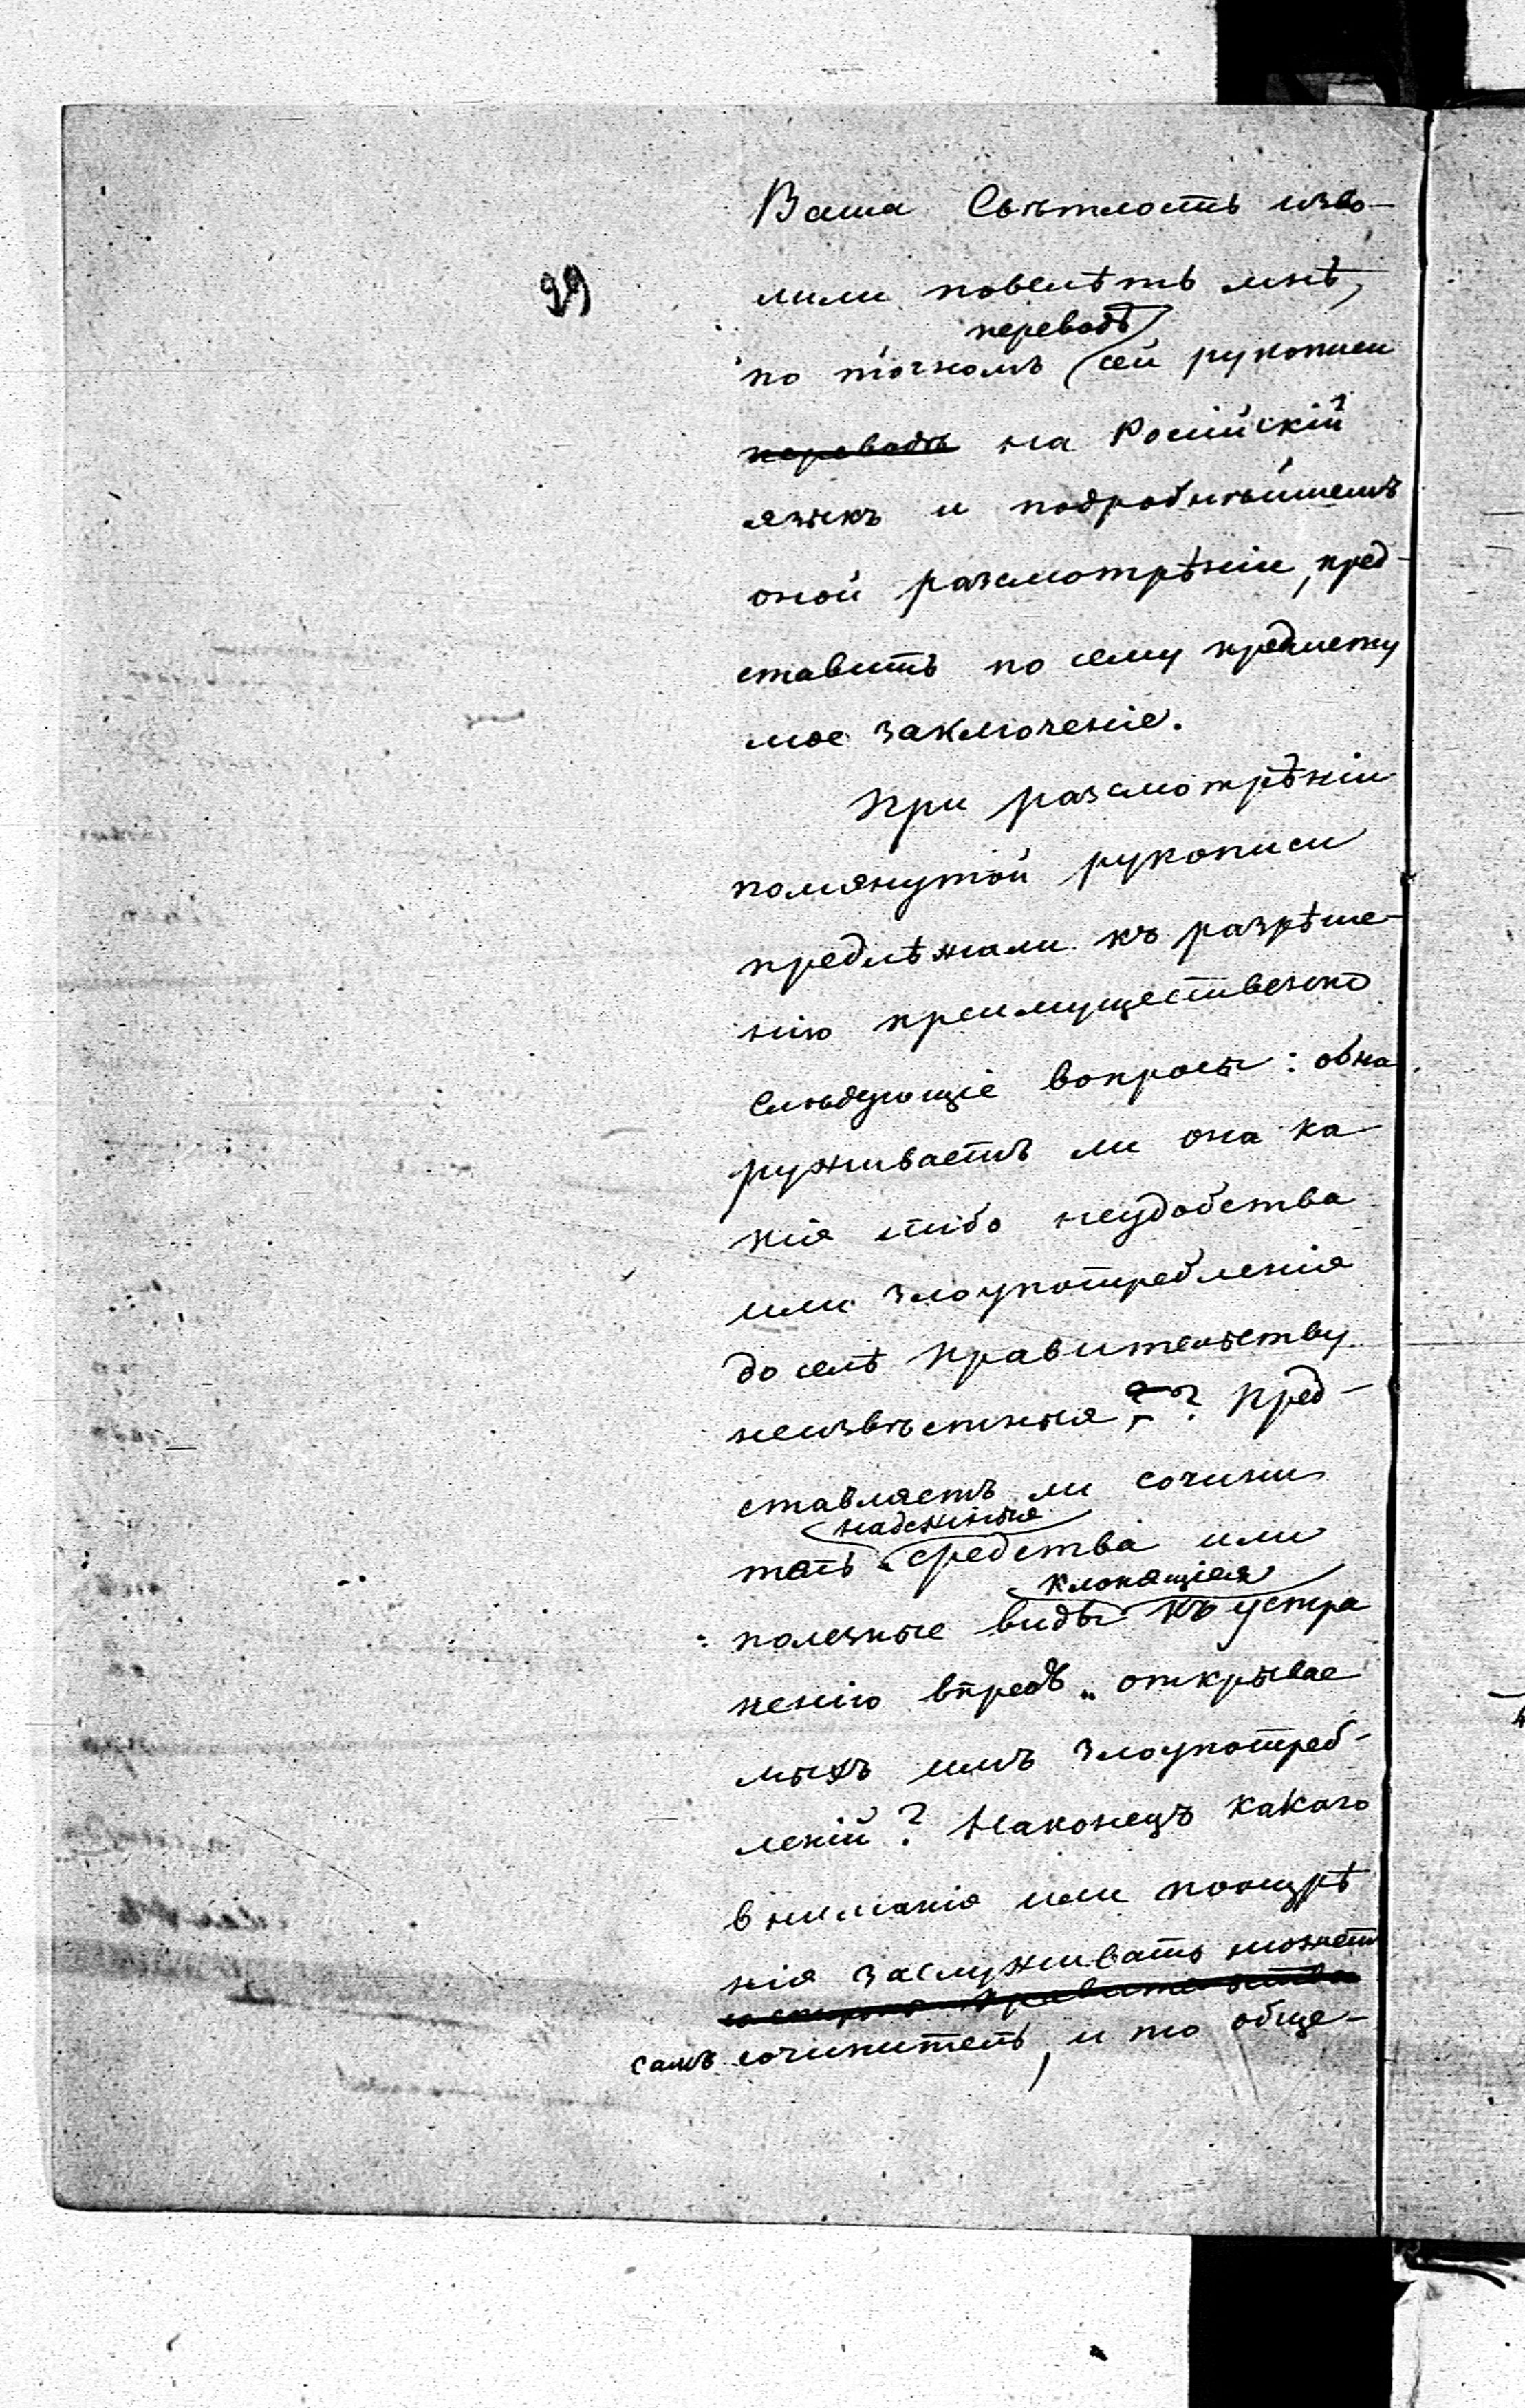 Ваша Свѣтлость изво-
29
лили повелѣть мнѣ,
переводѣ
по точномъ сей рукописи
переводѣ на Росiйскiй
языкъ и подробнѣйшемъ
оной разсмотрѣнiи, пред-
ставить по сему предмету
мое заключенiе.
При разсмотрѣнiи
помянутой рукописи
предлѣжали къ разрѣше-
нiю преимущественно
слѣдующiе вопросы: обна
руживаетъ ли она ка-
кiя либо неудобства
или злоупотребленiя
до селѣ правительству
неизвѣстныя? Пред-
ставляетъ ли сочини
надежныя
тель средства или
клонящiяся
полезные виды къ устра
ненiю впредь открывае
мыхъ имъ злоупотреб-
ленiй? Наконецъ какого
вниманiя или поощрѣ
нiя заслуживать можетъ
со стороны правительства
самъ сочинитель, и то обще-